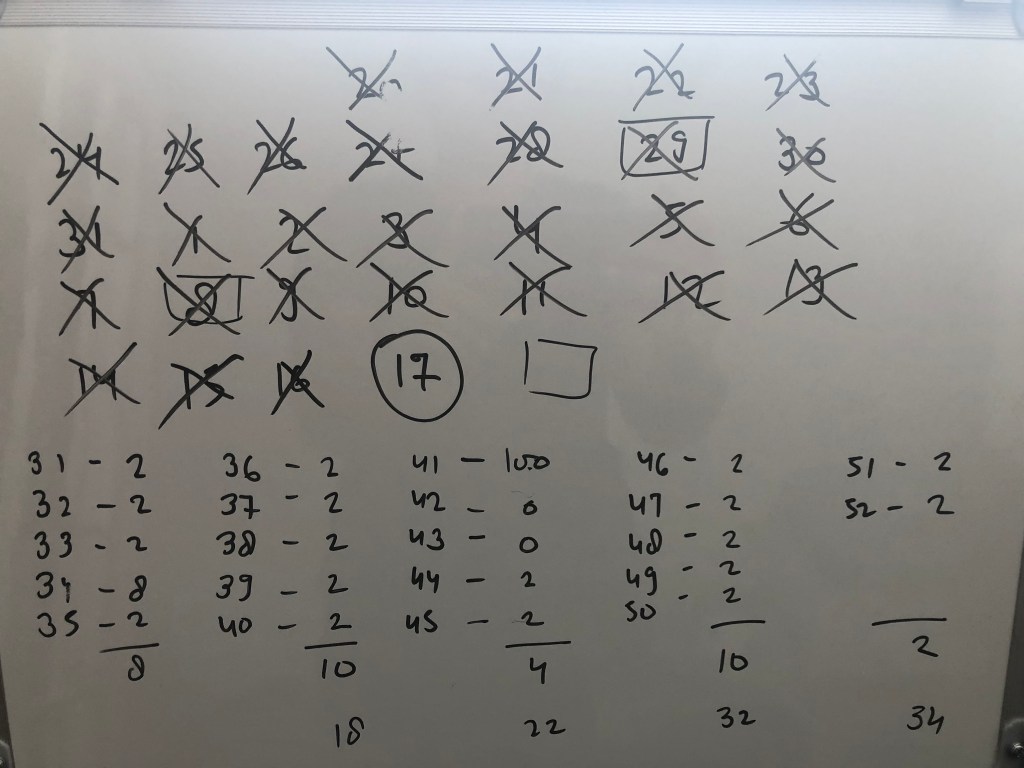 20 21 22 23
24 25 26 27 28 29 30
31 1 2 3 4 5 6
7 8 9 10 11 12 13
14 15 16 17
31 - 2 36 - 2 41 - 100 46 - 2 51 - 2
32 - 2 37 - 2 42 - 0 47 - 2 52 - 2
33 - 2 38 - 2 43 - 0 48 - 2
34 - 8 39 - 2 44 - 2 49 - 2
35 - 2 40 - 2 45 - 2 50 - 2
8 10 4 10 2
18 22 32 34